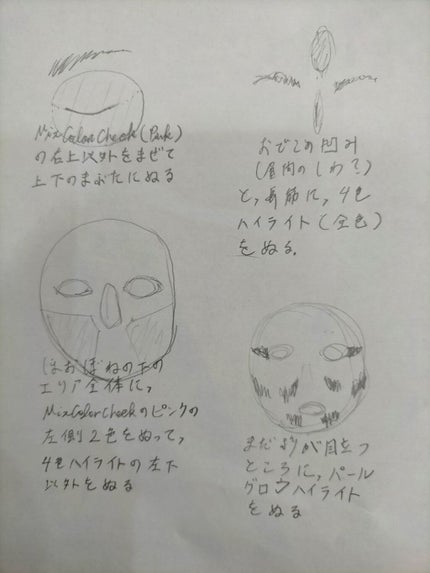 Mix Color Cheek (Pink)
の右上以外をまぜて
上下のまぶたにぬる
おでこの凹み
(眉間のしわ?)
と、鼻筋に、4色
ハイライト(全色)
をぬる。
ほおぼねの下の
エリア全体に、
Mix Color Cheekのピンクの
左側2色をぬって、
4色ハイライトの左下
以外をぬる
まだ影が目立つ
ところに、パール
グロウハイライト
をぬる